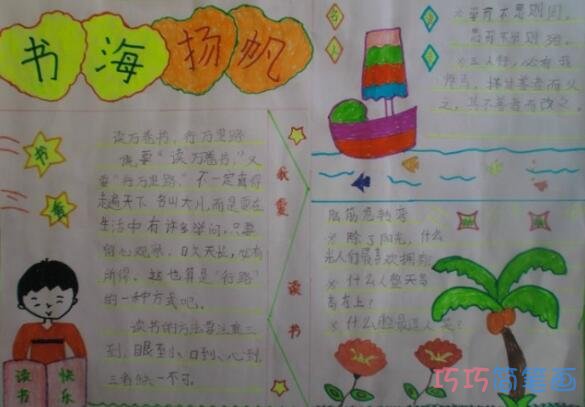 书海扬帆
学而不思则罔,
思而不学则殆。
三人行,必有我
师焉,择其善者而从
之,其不善者而改之。
书
读万卷书,行万里路
既要“读万卷书”,又
要“行万里路”,不一定真得
走遍天下、名山大川,而是要在
生活中有许多学问,只要
留心观察,日久天长,必有
所得,这也算是“行路”
的一种方式吧。
读书的方法要注意三
到,眼到、口到、心到,
三者缺一不可。
我爱读书
脑筋急转弯
除了阳光,什么
光人们最喜欢拥抱
什么人整天高
高在上?
什么
读书
快乐
巧巧简笔画